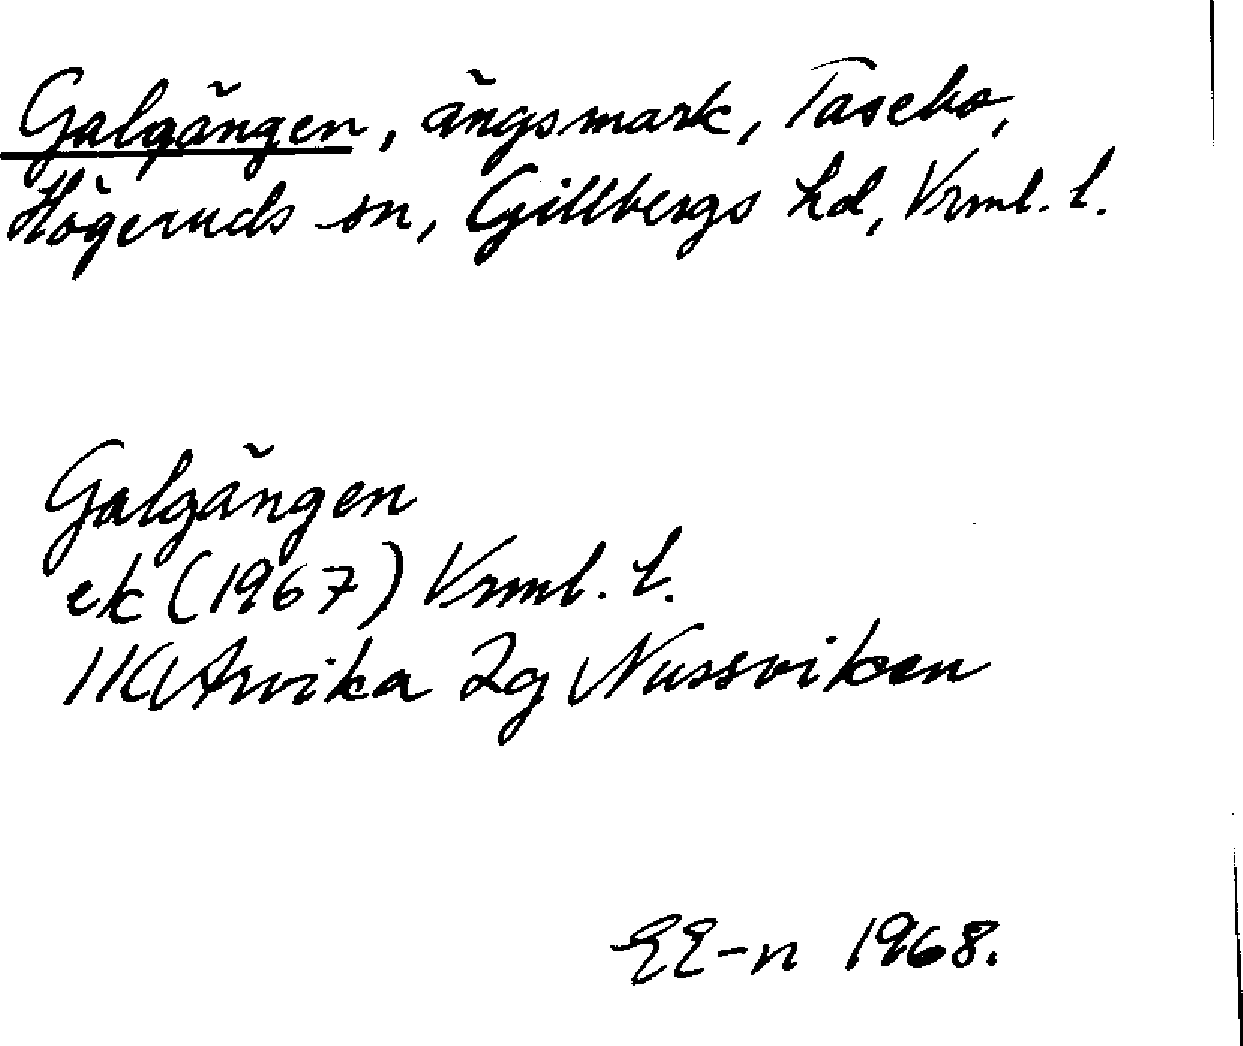 Galgängen, ängsmark, Tasebo,
Högeruds sn, Gillbergs hd, Vrml. l.
Galgängen
ek (1967) Vrml. l.
IK Arvika 2g Nussviken
EE-n 1968.